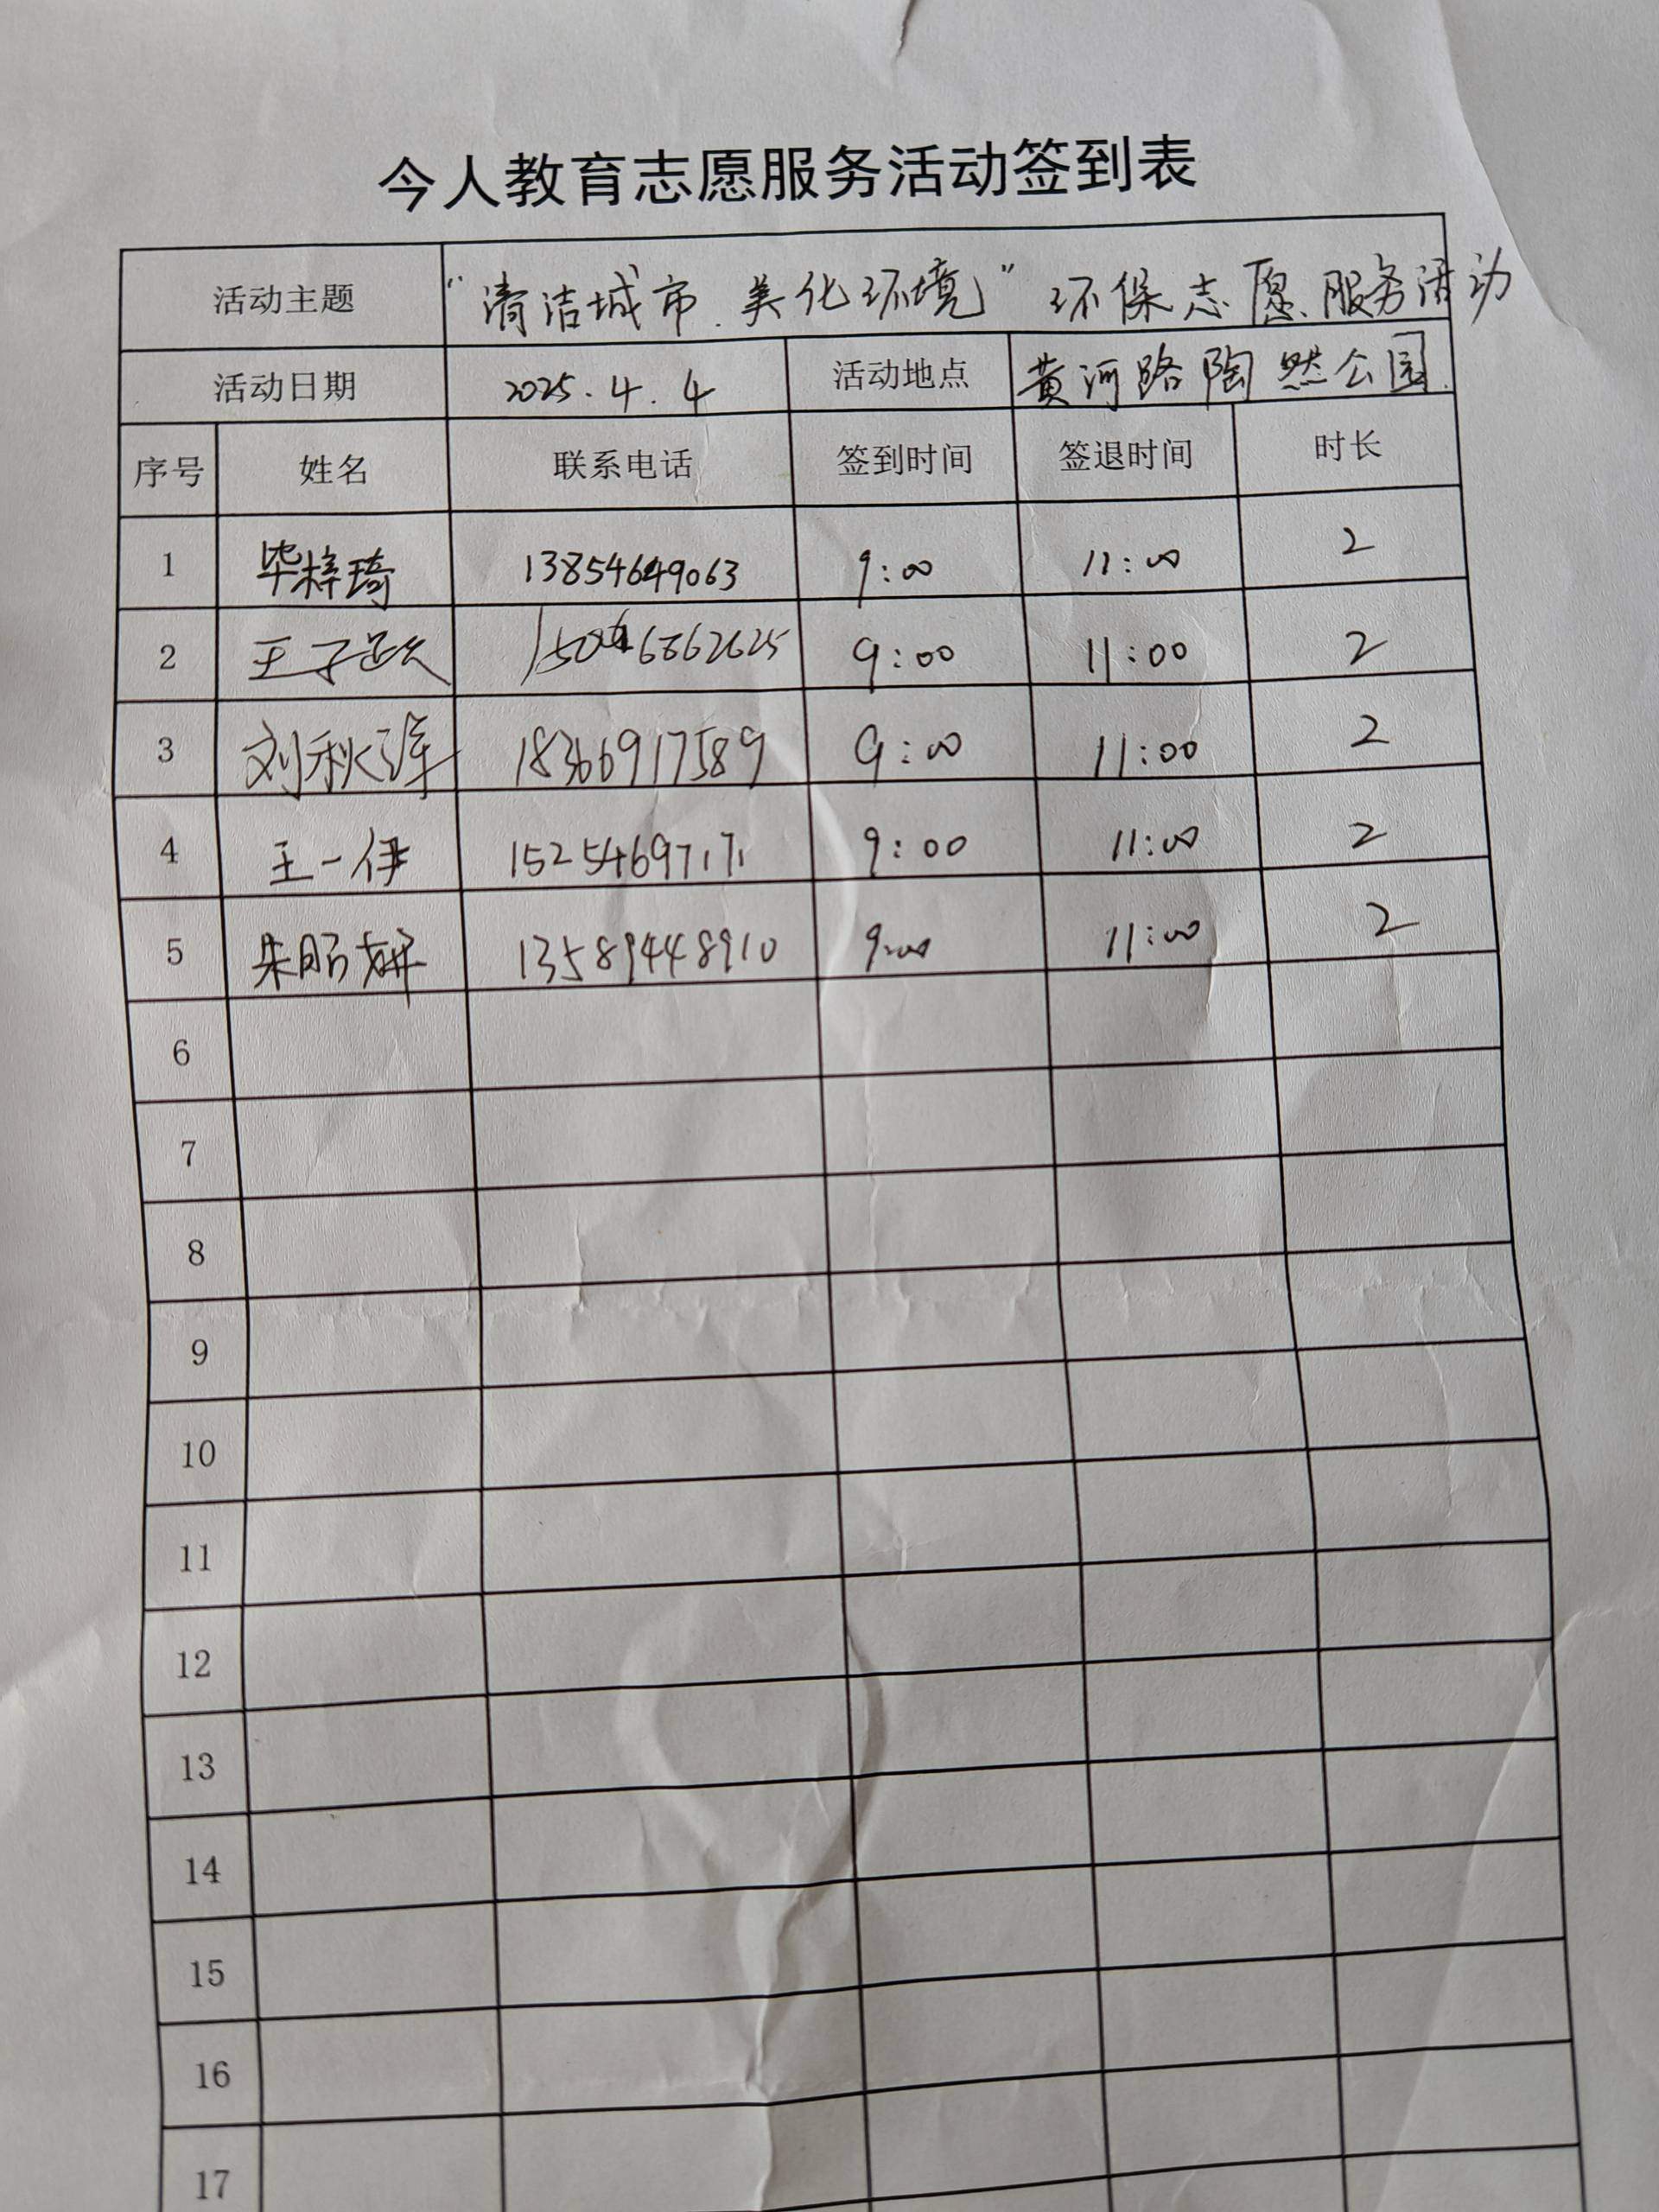 今人教育志愿服务活动签到表
活动主题 "清洁城市.美化环境" 环保志愿服务活动
活动日期 2025.4.4 活动地点 黄河路陶然公园
序号 姓名 联系电话 签到时间 签退时间 时长
1 毕梓琦 13854649063 9:00 11:00 2
2 王子 9:00 11:00 2
3 刘秋泽 18366917589 9:00 11:00 2
4 王一伊 15254697171 9:00 11:00 2
5 朱 妍 13589448910 9:00 11:00 2
6
7
8
9
10
11
12
13
14
15
16
17